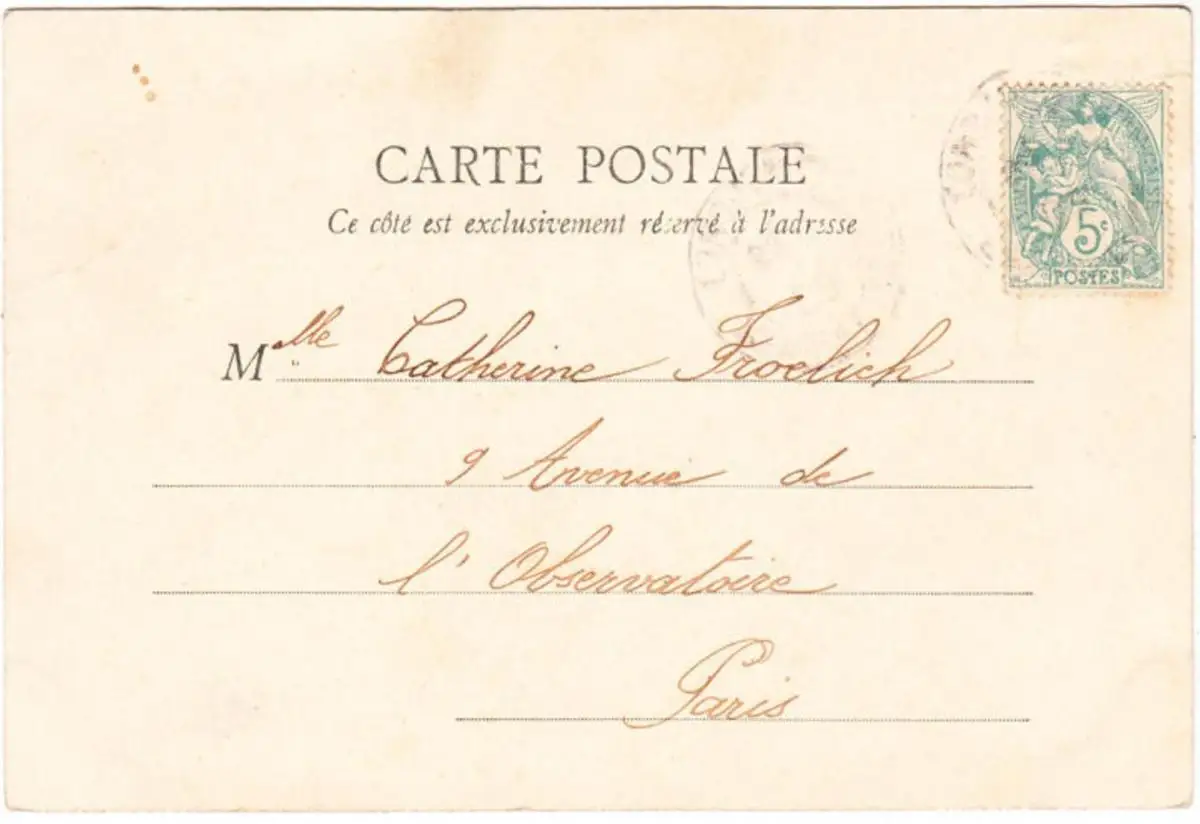 CARTE POSTALE
Ce côté est exclusivement réservé à l'adresse
5c
POSTES
Mlle Catherine Froelich
9 Avenue de
l'Observatoire
Paris